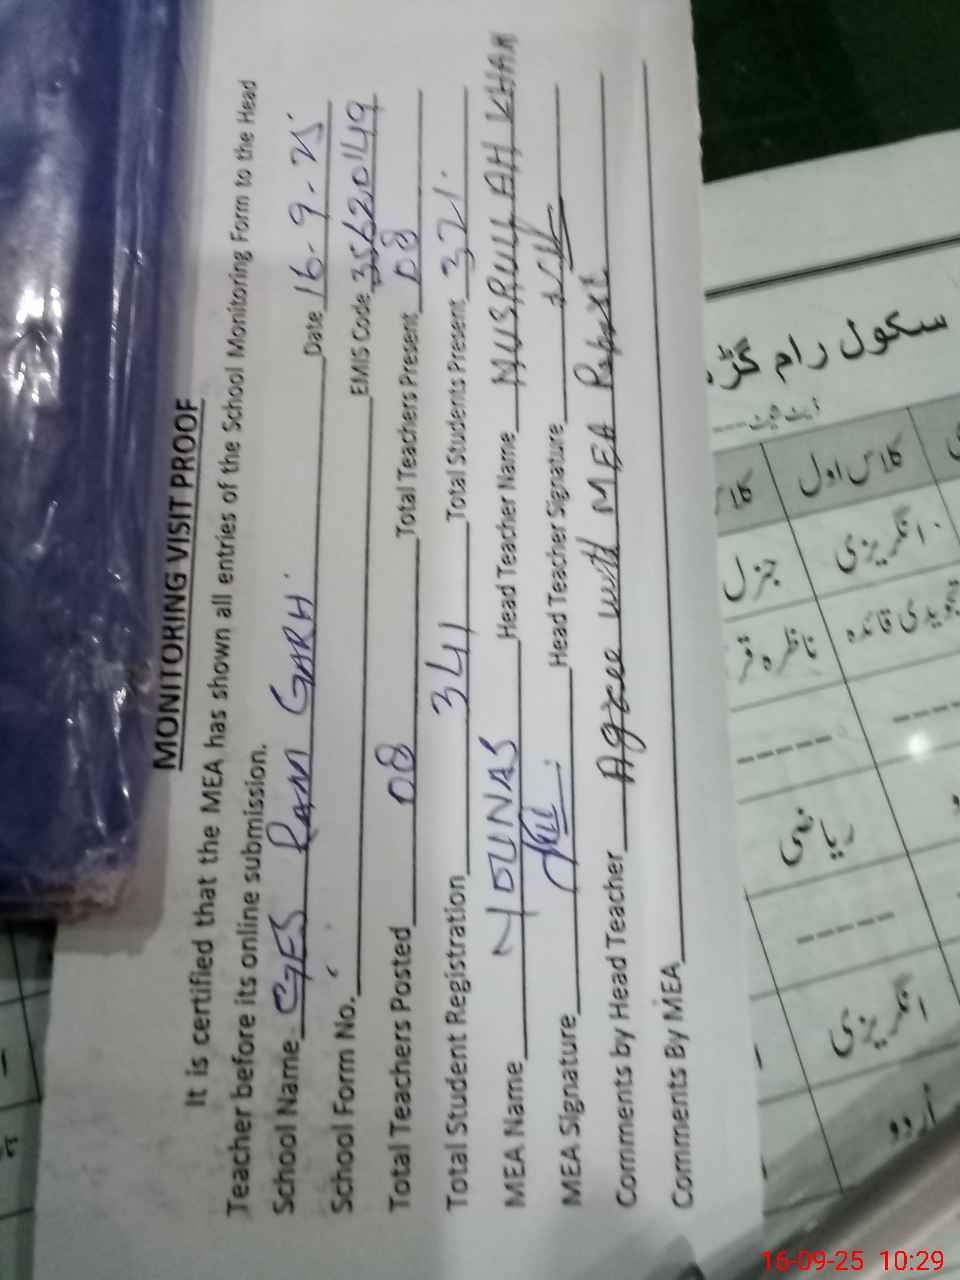 MONITORING VISIT PROOF
It is certified that the MEA has shown all entries of the School Monitoring Form to the Head
Teacher before its online submission.
School Name GES RAM GARH. Date 16-9-25
School Form No. EMIS Code 35620149
Total Teachers Posted 08 Total Teachers Present 08
Total Student Registration 341 Total Students Present 321.
MEA Name YOUNAS Head Teacher Name NUSRULLAH KHAN
MEA Signature Head Teacher Signature
Comments by Head Teacher Agree with MEA Report
Comments By MEA
سکول رام گڑھ
کلاس اول
جنرل
انگریزی
ناظرہ
قاعدہ
ریاضی
انگریزی
اُردو
16-09-25 10:29